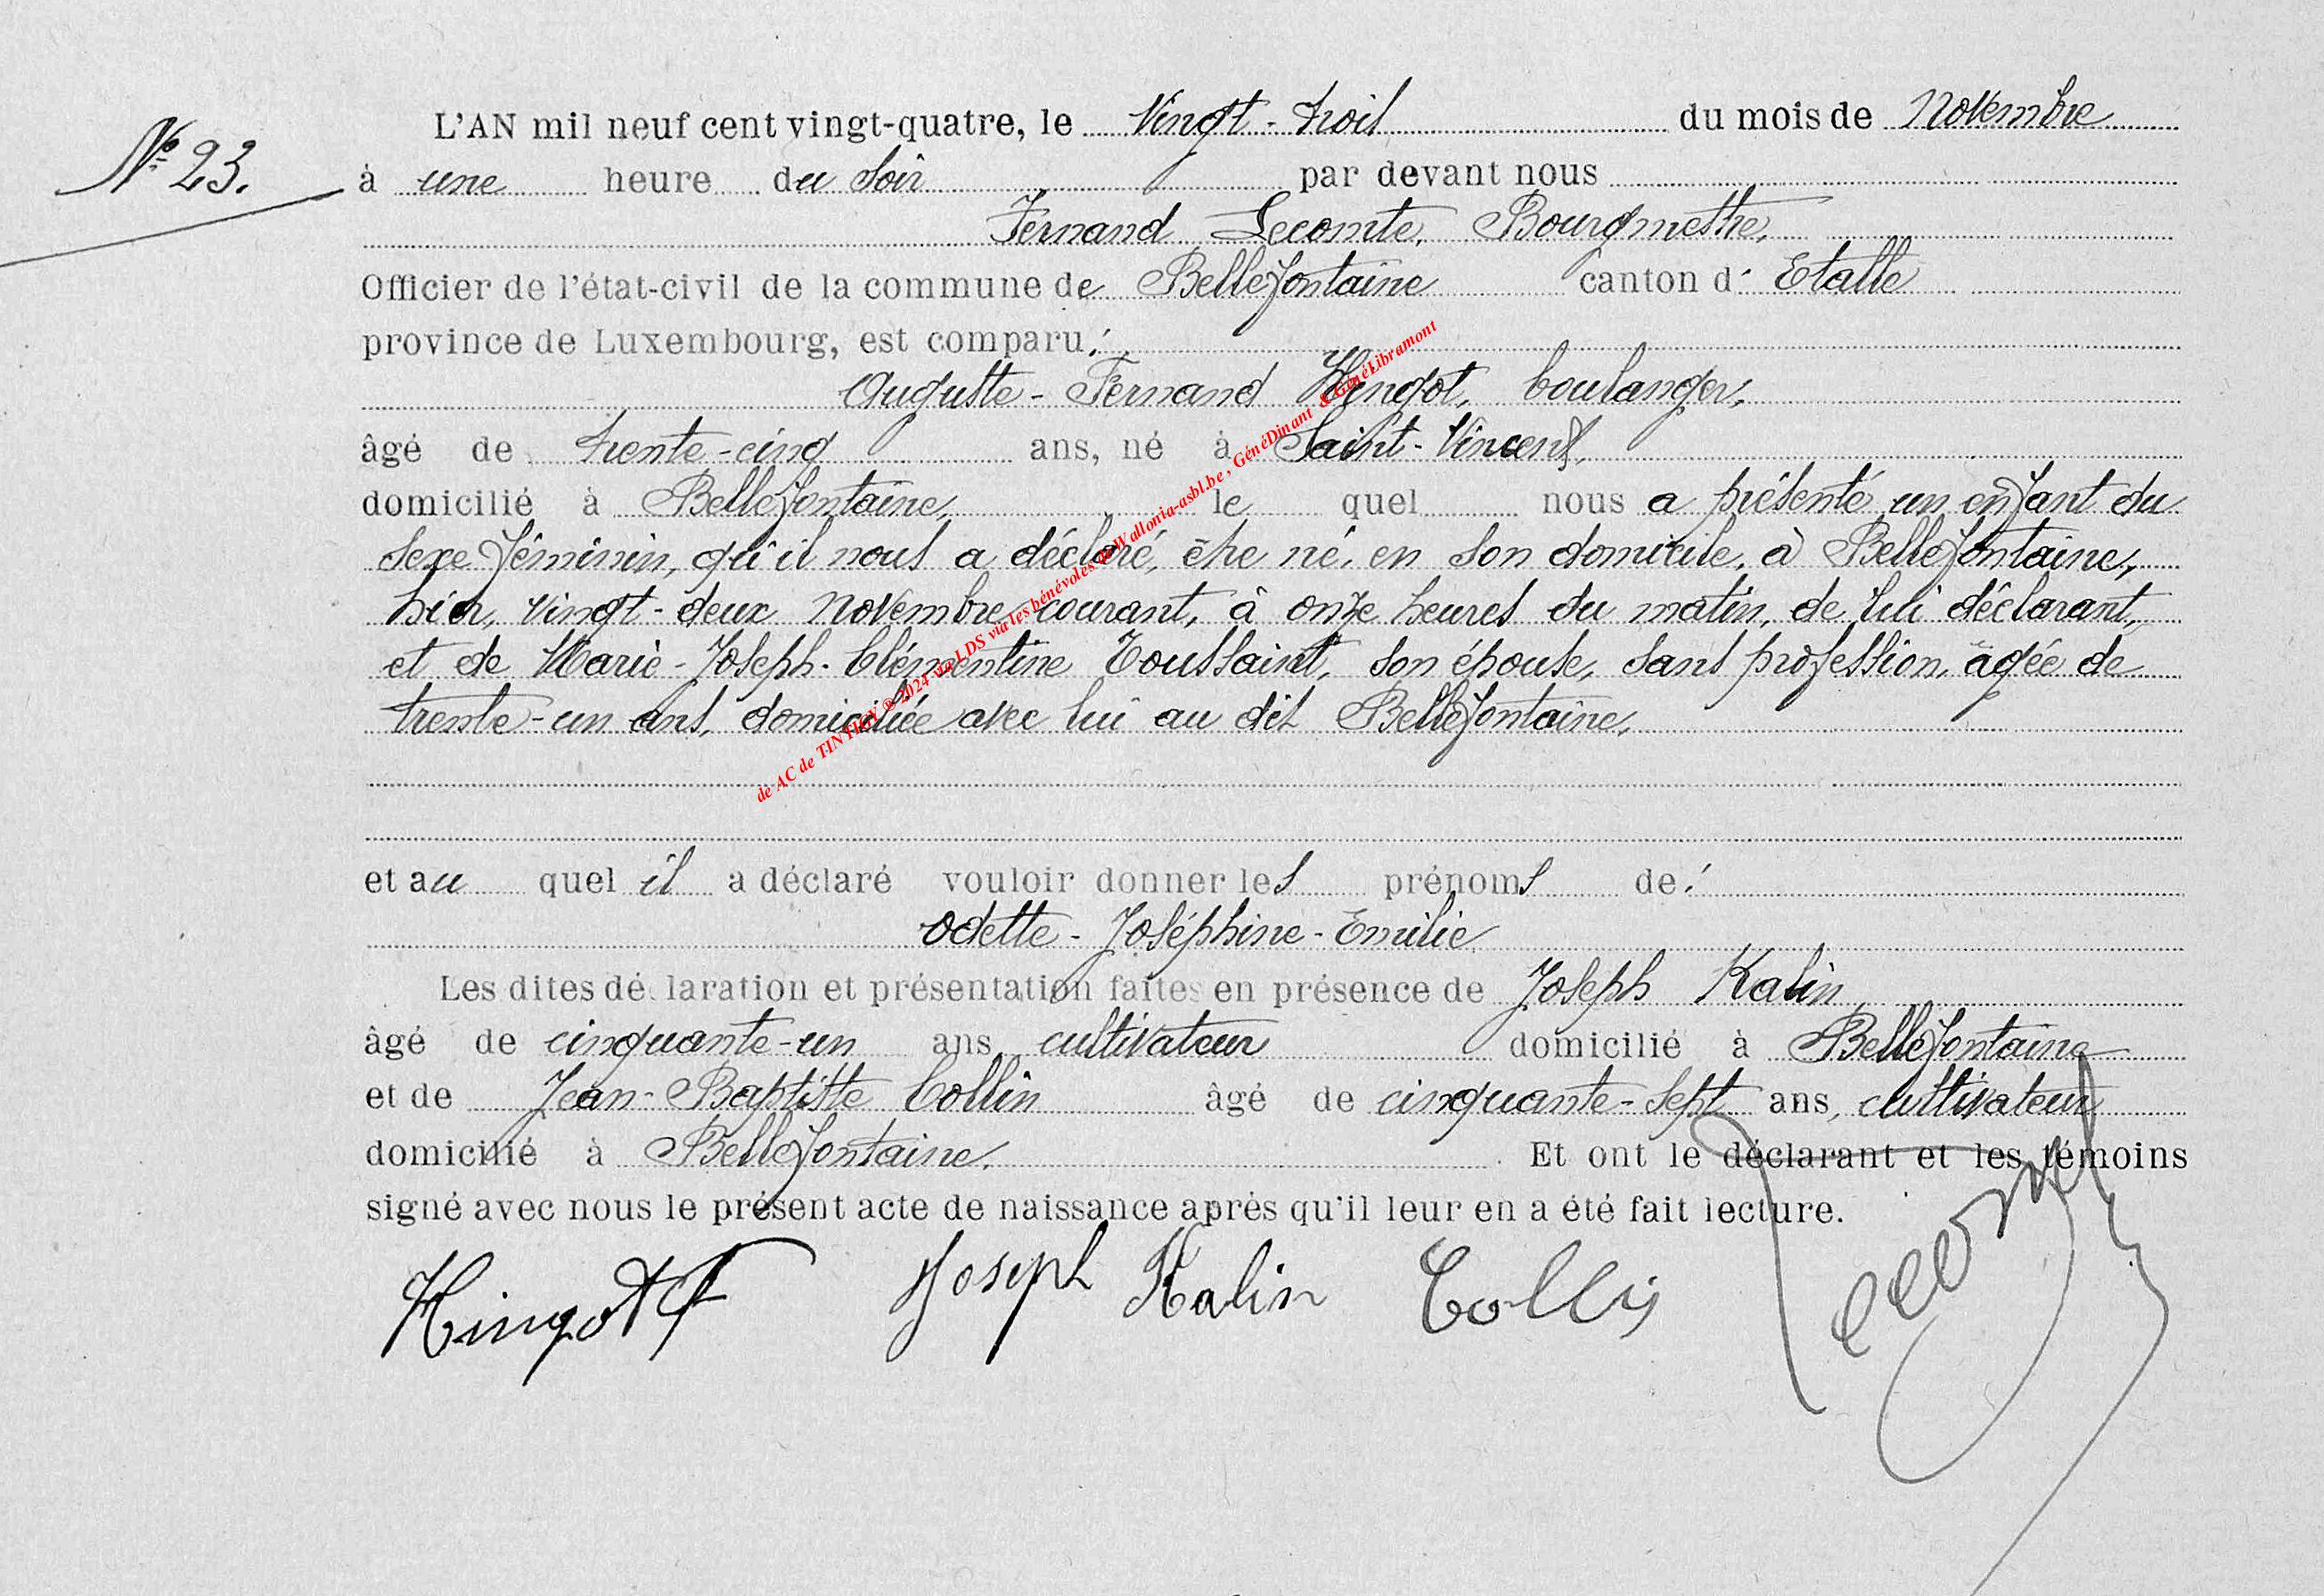 N° 23.
L'AN mil neuf cent vingt-quatre, le Vingt-trois du mois de Novembre
à une heure du soir par devant nous
Fernand Lecomte, Bourgmestre,
Officier de l'état-civil de la commune de Bellefontaine canton d' Etalle
province de Luxembourg, est comparu :
Auguste-Fernand Hingot, boulanger,
âgé de trente-cinq ans, né à Saint-Vincent,
domicilié à Bellefontaine, le quel nous a présenté un enfant du
sexe féminin, qu'il nous a déclaré, être né, en son domicile, à Bellefontaine,
hier, vingt-deux novembre courant, à onze heures du matin, de lui déclarant,
et de Marie-Joseph-Clémentine Toussaint, son épouse, sans profession, âgée de
trente-un ans, domiciliée avec lui au dit Bellefontaine,
de AC de TINTIGNY ® 2024 via LDS via les bénévoles de Wallonia-asbl.be, GénéDinant & GénéLibramont
et au quel il a déclaré vouloir donner les prénoms de :
Odette-Joséphine-Emilie
Les dites déclaration et présentation faites en présence de Joseph Kalin
âgé de cinquante-un ans cultivateur domicilié à Bellefontaine
et de Jean-Baptiste Collin âgé de cinquante-sept ans, cultivateur
domicilié à Bellefontaine. Et ont le déclarant et les témoins
signé avec nous le présent acte de naissance après qu'il leur en a été fait lecture.
Hingot F Joseph Kalin Collin Lecomte